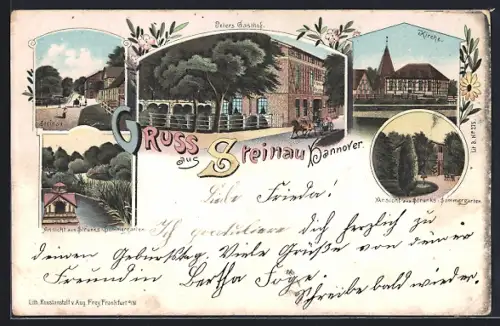 Peters Gasthof.
Kirche.
Gruss
aus
Steinau
Hannover.
Ansicht aus Stranks-Sommergarten
Ansicht aus Stranks-Sommergarten
Liebe Frieda!
Ich gratuliere dich herzlich zu
deinem Geburtstag. Viele Grüße von deiner
Freundin Bertha
Schreibe bald wieder.
Lith. Kunstanstalt v. Aug. Frey, Frankfurt a/M